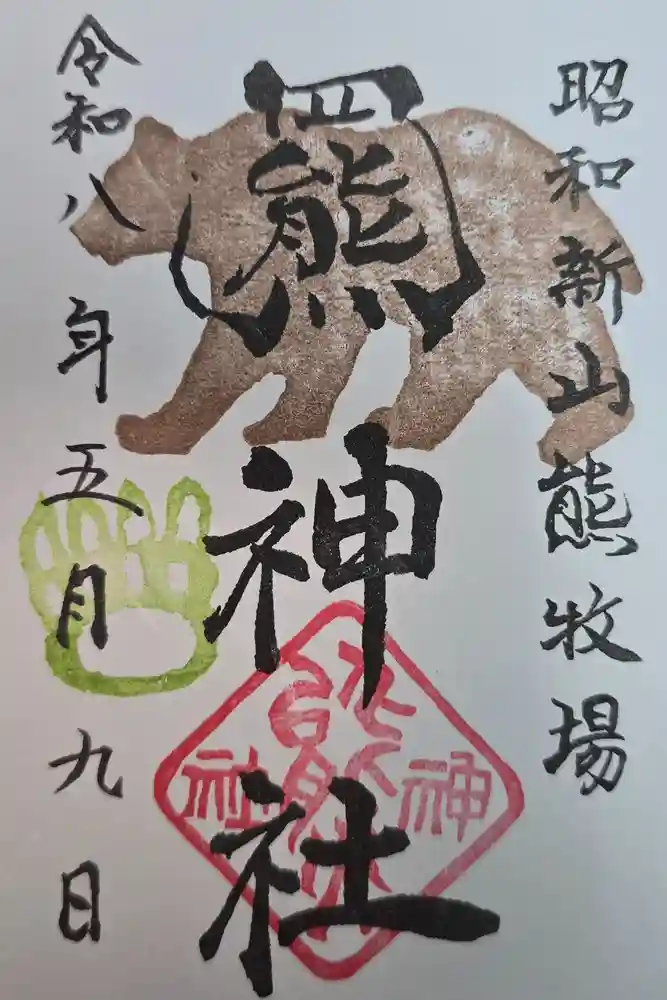 昭和新山熊牧場
羆神社
熊神社
令和八年五月九日